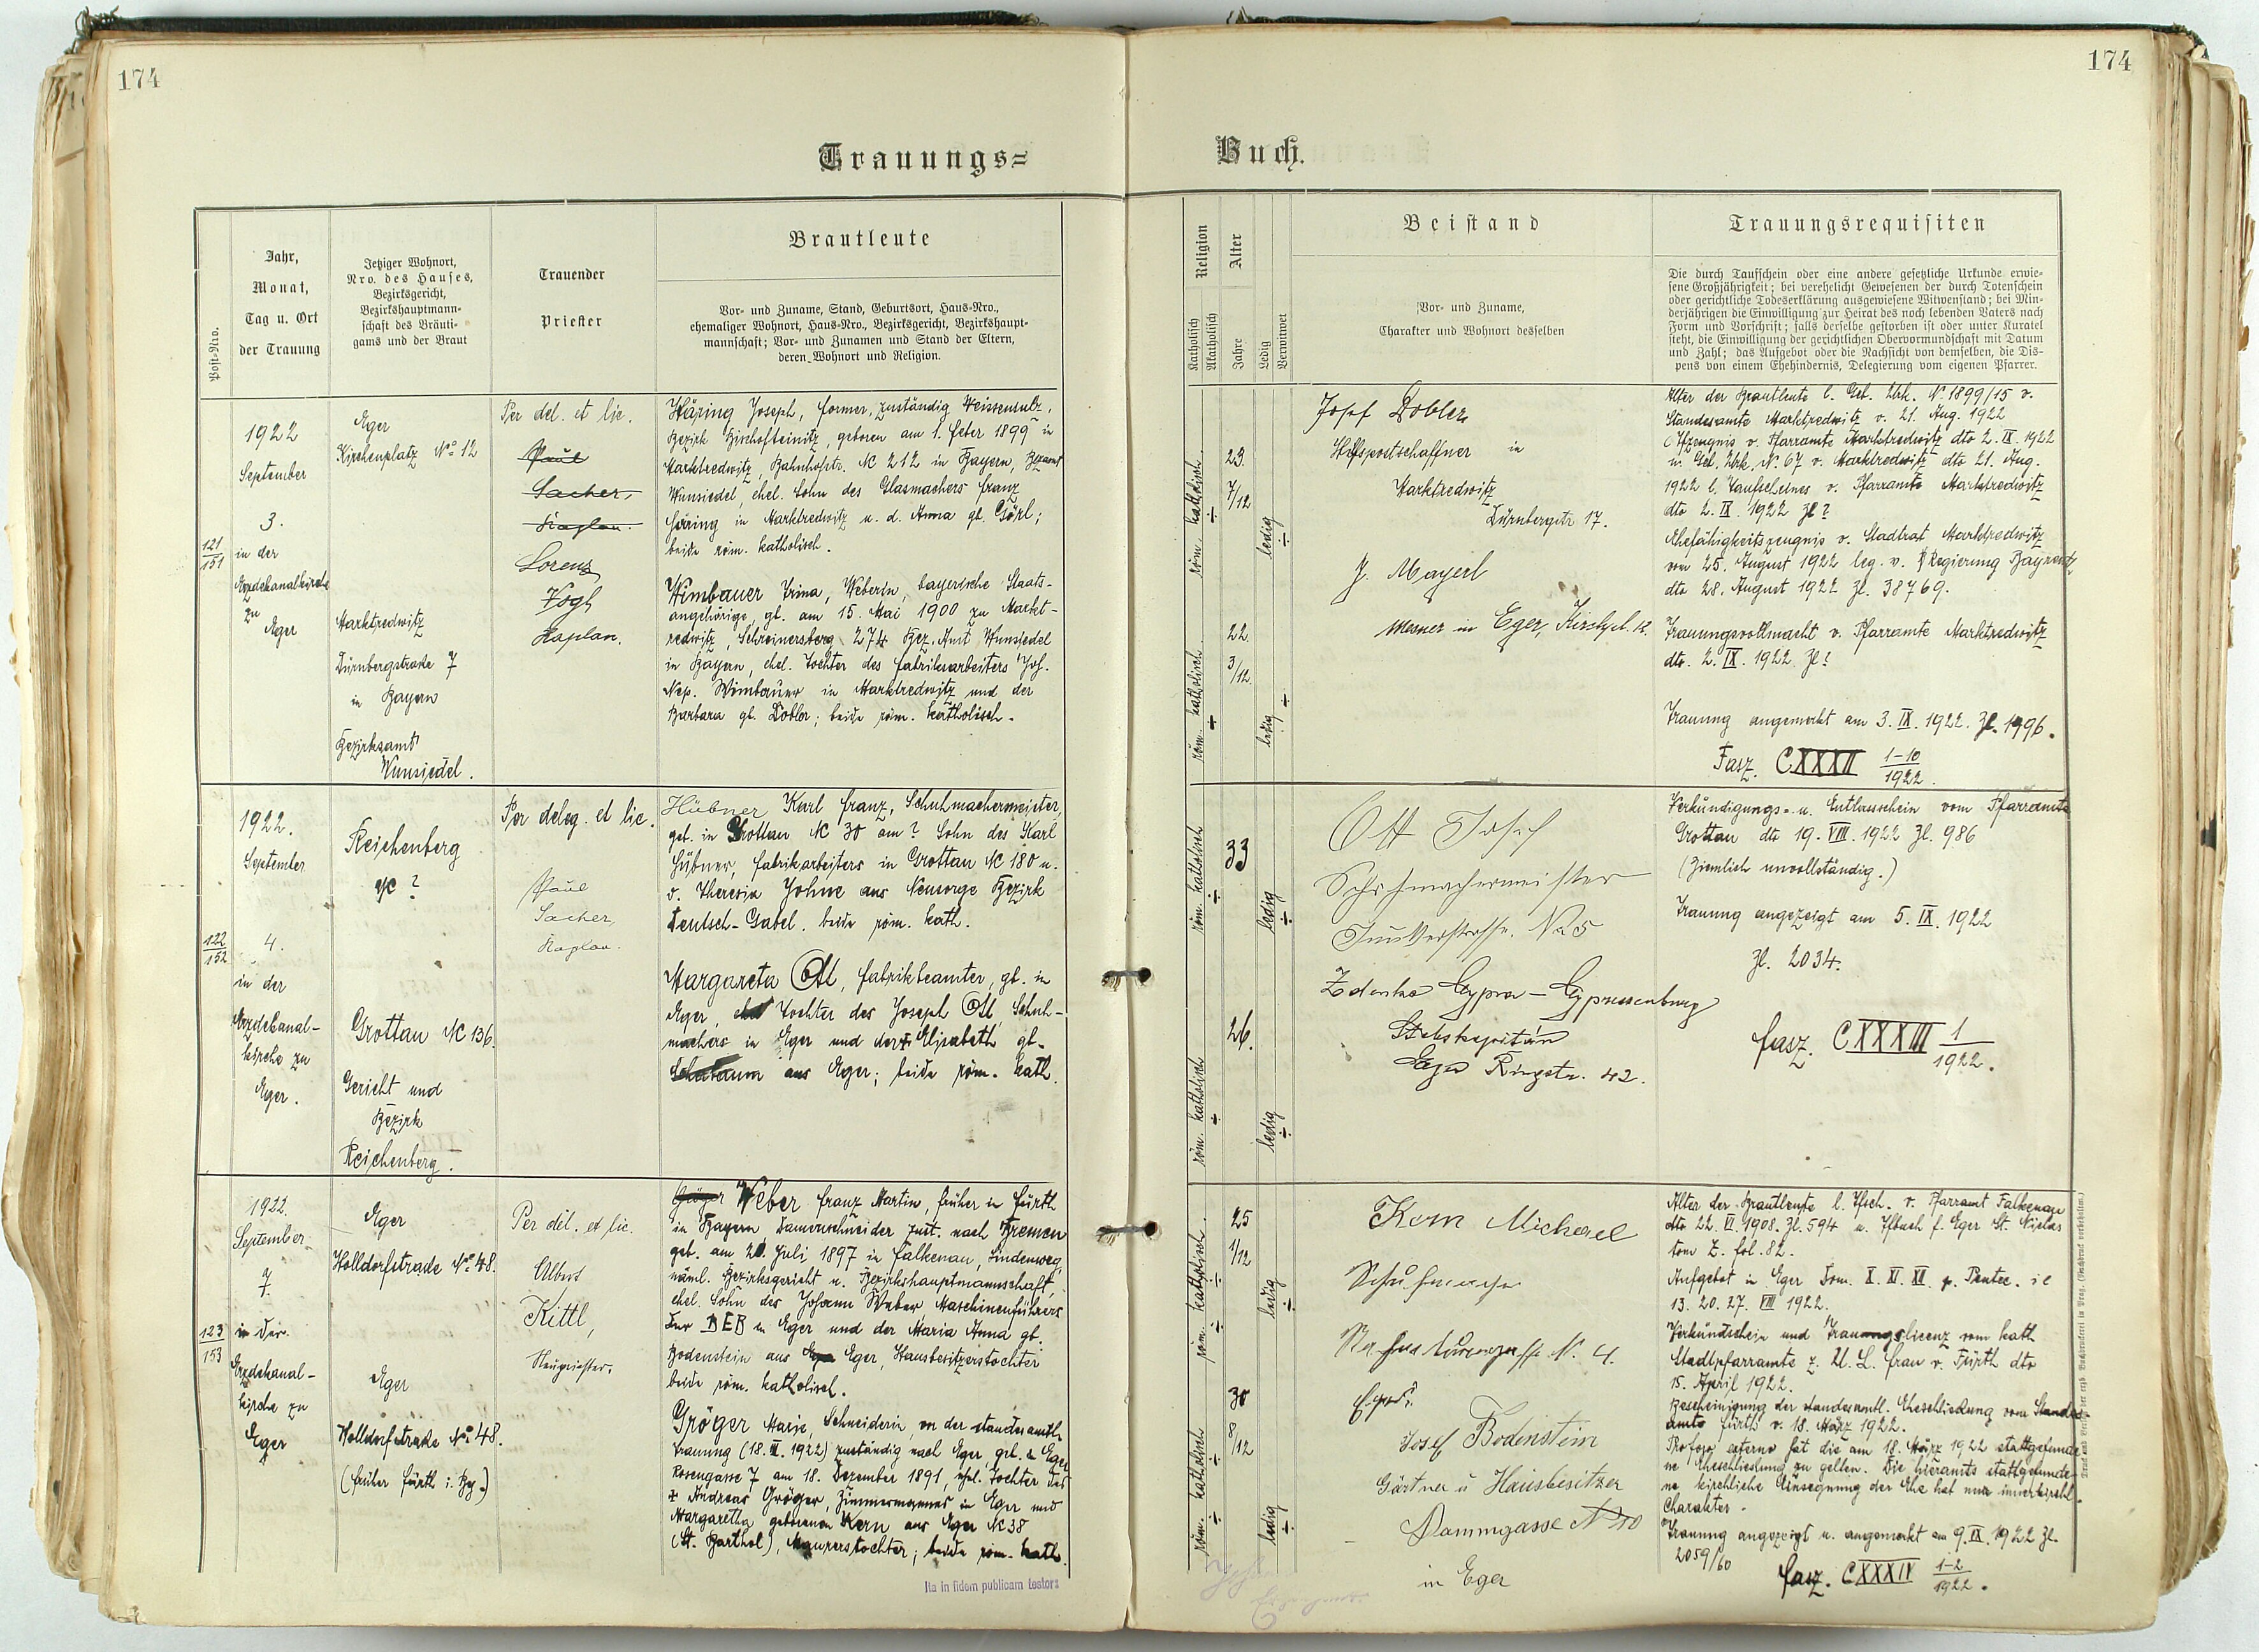 174
174
Trauungs=
Buch.
Post-Nro.
Jahr,
Monat,
Tag u. Ort
der Trauung
Jetziger Wohnort,
Nro. des Hauses,
Bezirksgericht,
Bezirkshauptmann-
schaft des Bräuti-
gams und der Braut
Trauender
Priester
Brautleute
Vor- und Zuname, Stand, Geburtsort, Haus-Nro.,
ehemaliger Wohnort, Haus-Nro., Bezirksgericht, Bezirkshaupt-
mannschaft; Vor- und Zunamen und Stand der Eltern,
deren Wohnort und Religion.
Religion
Katholisch
Akatholisch
Alter
Jahre
Ledig
Verwitwet
Beistand
Vor- und Zuname,
Charakter und Wohnort desselben
Trauungsrequisiten
Die durch Taufschein oder eine andere gesetzliche Urkunde erwie-
sene Großjährigkeit; bei verehelicht Gewesenen der durch Totenschein
oder gerichtliche Todeserklärung ausgewiesene Witwenstand; bei Min-
derjährigen die Einwilligung zur Heirat des noch lebenden Vaters nach
Form und Vorschrift; falls derselbe gestorben ist oder unter Kuratel
steht, die Einwilligung der gerichtlichen Obervormundschaft mit Datum
und Zahl; das Aufgebot oder die Nachsicht von demselben, die Dis-
pens von einem Ehehindernis, Delegierung vom eigenen Pfarrer.
121
151
1922
September
3.
in der
Erzdekanalkirche
zu
Eger
Eger
Kirchenplatz No 12
Marktredwitz
Dürnbergstraße 7
in Bayern
Bezirksamt
Wunsiedel.
Per del. et lic.
Paul
Sacher,
Kaplan.
Lorenz
Vogl
Kaplan.
Häring Joseph, Former, zuständig Weissensulz,
Bezirk Bischofteinitz, geboren am 1. Feber 1899 in
Marktredwitz, Bahnhofstr. NC 212 in Bayern, Bezamt
Wunsiedel, ehel. Sohn des Glasmachers Franz
Häring in Marktredwitz u. d. Anna gb. Görl;
beide röm. katholisch.
Wimbauer Irina, Weberin, bayerische Staats-
angehörige, gb. am 15. Mai 1900 zu Markt-
redwitz, Schreinersberg 274 Bez. Amt Wunsiedel
in Bayern, ehel. Tochter des Fabriksarbeiters Joh.
Nep. Wimbauer in Marktredwitz und der
Barbara gb. Dobler; beide röm. katholisch.
röm. katholisch.
23
7/12
ledig
röm. katholisch.
22
3/12
ledig
Josef Dobler
Hilfspostschaffner in
Marktredwitz
Dürnbergstr 17.
J. Mayerl
Mesner in Eger, Kirchpl. 12.
Alter der Brautleute l. Geb. Urk. No 1899/15 v.
Standesamte Marktredwitz v. 21. Aug. 1922
u. Geb. Urk. No. 67 v. Marktredwitz dto 21. Aug.
1922 l. Taufscheines v. Pfarramte Marktredwitz
dto 2. IX. 1922 Zl?
Ehefähigkeitszeugnis v. Stadtrat Marktredwitz
vom 25. August 1922 leg. v. Regierung Bayreuth
dto 28. August 1922 Zl. 38769.
Trauungsvollmacht v. Pfarramte Marktredwitz
dto. 2. IX. 1922 Zl?
Trauung angemerkt am 3. IX. 1922. Zl. 1996.
Fasz. CXXXII 1-10
1922.
122
152
1922.
September
4.
in der
Erzdekanal-
kirche zu
Eger.
Reichenberg
NC ?
Grottau NC 136.
Gericht und
Bezirk
Reichenberg.
Per deleg. et lic.
Paul
Sacher,
Kaplan.
Hübner Karl Franz, Schuhmachermeister,
geb. in Grottau NC 30 am ? Sohn des Karl
Hübner, Fabrikarbeiters in Grottau NC 180 u.
d. Theresia Johne aus Neusorge Bezirk
Deutsch-Gabel. beide röm. kath.
Margareta Ott, Fabrikbeamter, gb. in
Eger, Tochter des Joseph Ott, Schuh-
machers in Eger und der Elisabeth gb.
aus Eger; beide röm. kath.
röm. katholisch
33
ledig
röm. katholisch
26.
ledig
Ott Josef
Schuhmachermeister
No 5
Zdenko Cypra-Cyprussenburg
Stabskapitän
Eger Ringstr. 42.
Verkündigungs- u. Entlasschein vom Pfarramte
Grottau dto 19. VIII. 1922 Zl. 986
(Ziemlich unvollständig.)
Trauung angezeigt am 5. IX. 1922
Zl. 2034.
Fasz. CXXXIII 1
1922.
123
153
1922.
September
7.
in der
Erzdekanal-
kirche zu
Eger
Eger
Holldorfstraße No. 48.
Eger
Holldorfstraße No. 48.
(früher Fürth i. Bay.)
Per del. et lic.
Albert
Kittl,
Neupriester.
Gröger Weber Franz Martin, früher in Fürth
in Bayern Damenschneider zust. nach Bremen
geb. am 21. Juli 1897 in Falkenau, Lindenweg,
näml. Bezirksgericht u. Bezirkshauptmannschaft,
ehel. Sohn des Johann Weber Maschinenführers
der BEB in Eger und der Maria Anna gb.
Bodenstein aus Eger, Hausbesitzerstochter
beide röm. katholisch.
Gröger Marie, Schneiderin, vor der standesamtl.
Trauung (18. III. 1922) zuständig nach Eger, geb. in Eger
Rosengasse 7 am 18. Dezember 1891, ehel. Tochter des
+ Andreas Gröger, Zimmermannes in Eger und
Margaretha geborenen Kern aus Eger NC 38
(St. Barthol), Maurerstochter; beide röm. kath.
Ita in fidem publicam testor:
röm. katholisch.
25
1/12
ledig
röm. katholisch
30
8/12
ledig
Kern Michael
Schuhmacher
No. 4.
Eger.
Josef Bodenstein
Gärtner u Hausbesitzer
Dammgasse No 10
in Eger
Alter der Brautleute l. Tfsch. v. Pfarramt Falkenau
dto 22. VI. 1908. Zl. 594 u. Tfbuch f. Eger St. Niclas
tom Z. fol. 82.
Aufgebot in Eger Dom. X. XI. XII. p. Pentec. i e
13. 20. 27. VIII 1922.
Verkündschein und Trauungslicenz vom kath
Stadtpfarramte z. U. L. Frau v. Fürth dto
15. April 1922.
Bescheinigung der standesamtl. Eheschließung vom Standes-
amte Fürth v. 18. März 1922.
Pro foro externo hat die am 18. März 1922 stattgefunde-
ne Eheschliessung zu gelten. Die hieramts stattgefunde-
ne kirchliche Einsegnung der Ehe hat nur innerkirchl.
Charakter.
Trauung angezeigt u. angemerkt am 9. IX. 1922 Zl.
2059/60
Fasz. CXXXIV 1-2
1922.